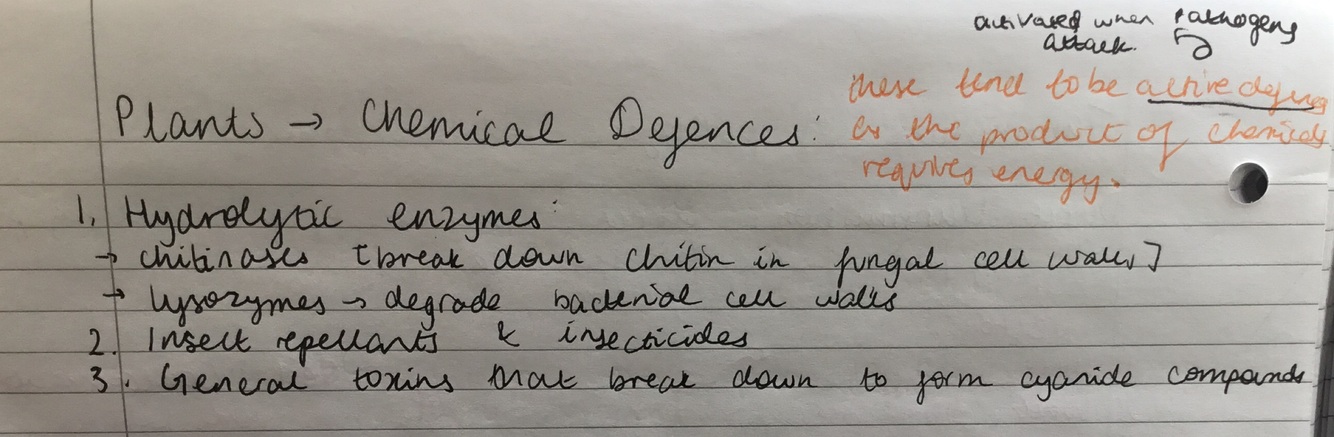 activated when pathogens
attack.
these tend to be active defences
as the product of chemicals
requires energy.
Plants → Chemical Defences:
1. Hydrolytic enzymes:
→ chitinases [break down chitin in fungal cell walls]
→ lysozymes → degrade bacterial cell walls
2. Insect repellants & insecticides
3. General toxins that break down to form cyanide compounds